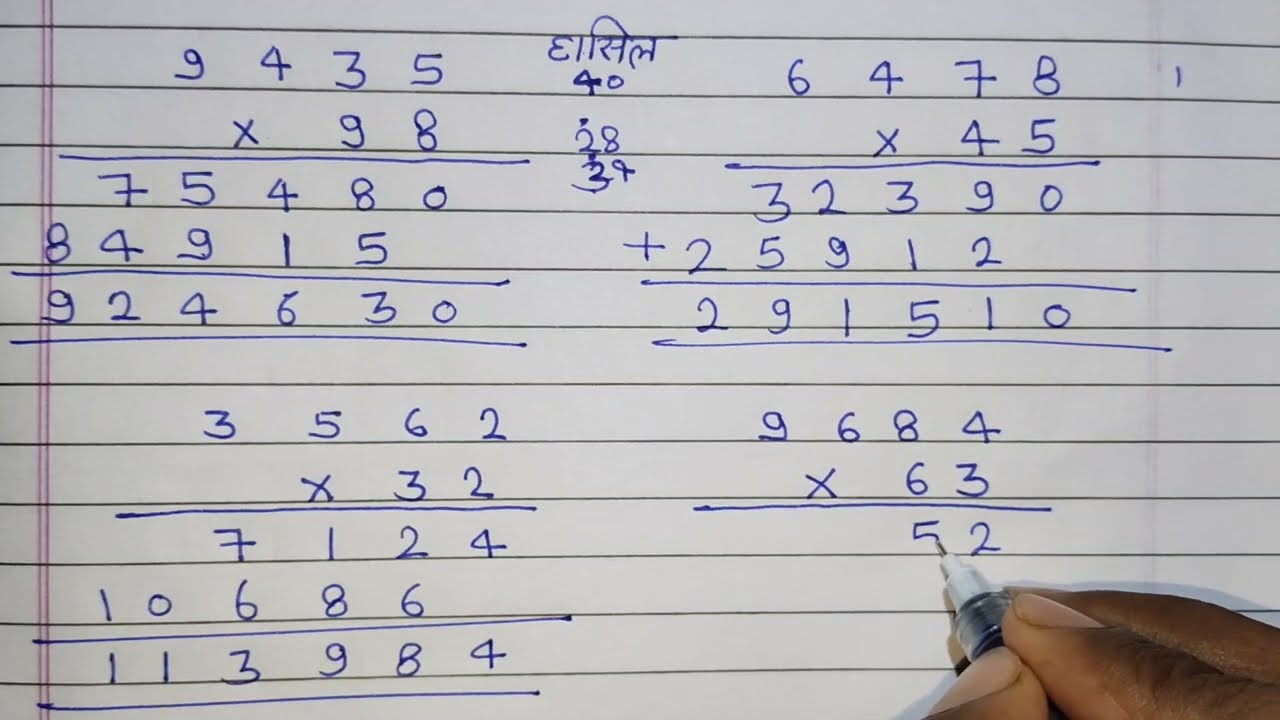 9 4 3 5
× 9 8
7 5 4 8 0
8 4 9 1 5
9 2 4 6 3 0
हासिल
40
28
37
6 4 7 8
× 4 5
3 2 3 9 0
+ 2 5 9 1 2
2 9 1 5 1 0
3 5 6 2
× 3 2
7 1 2 4
1 0 6 8 6
1 1 3 9 8 4
9 6 8 4
× 6 3
5 2